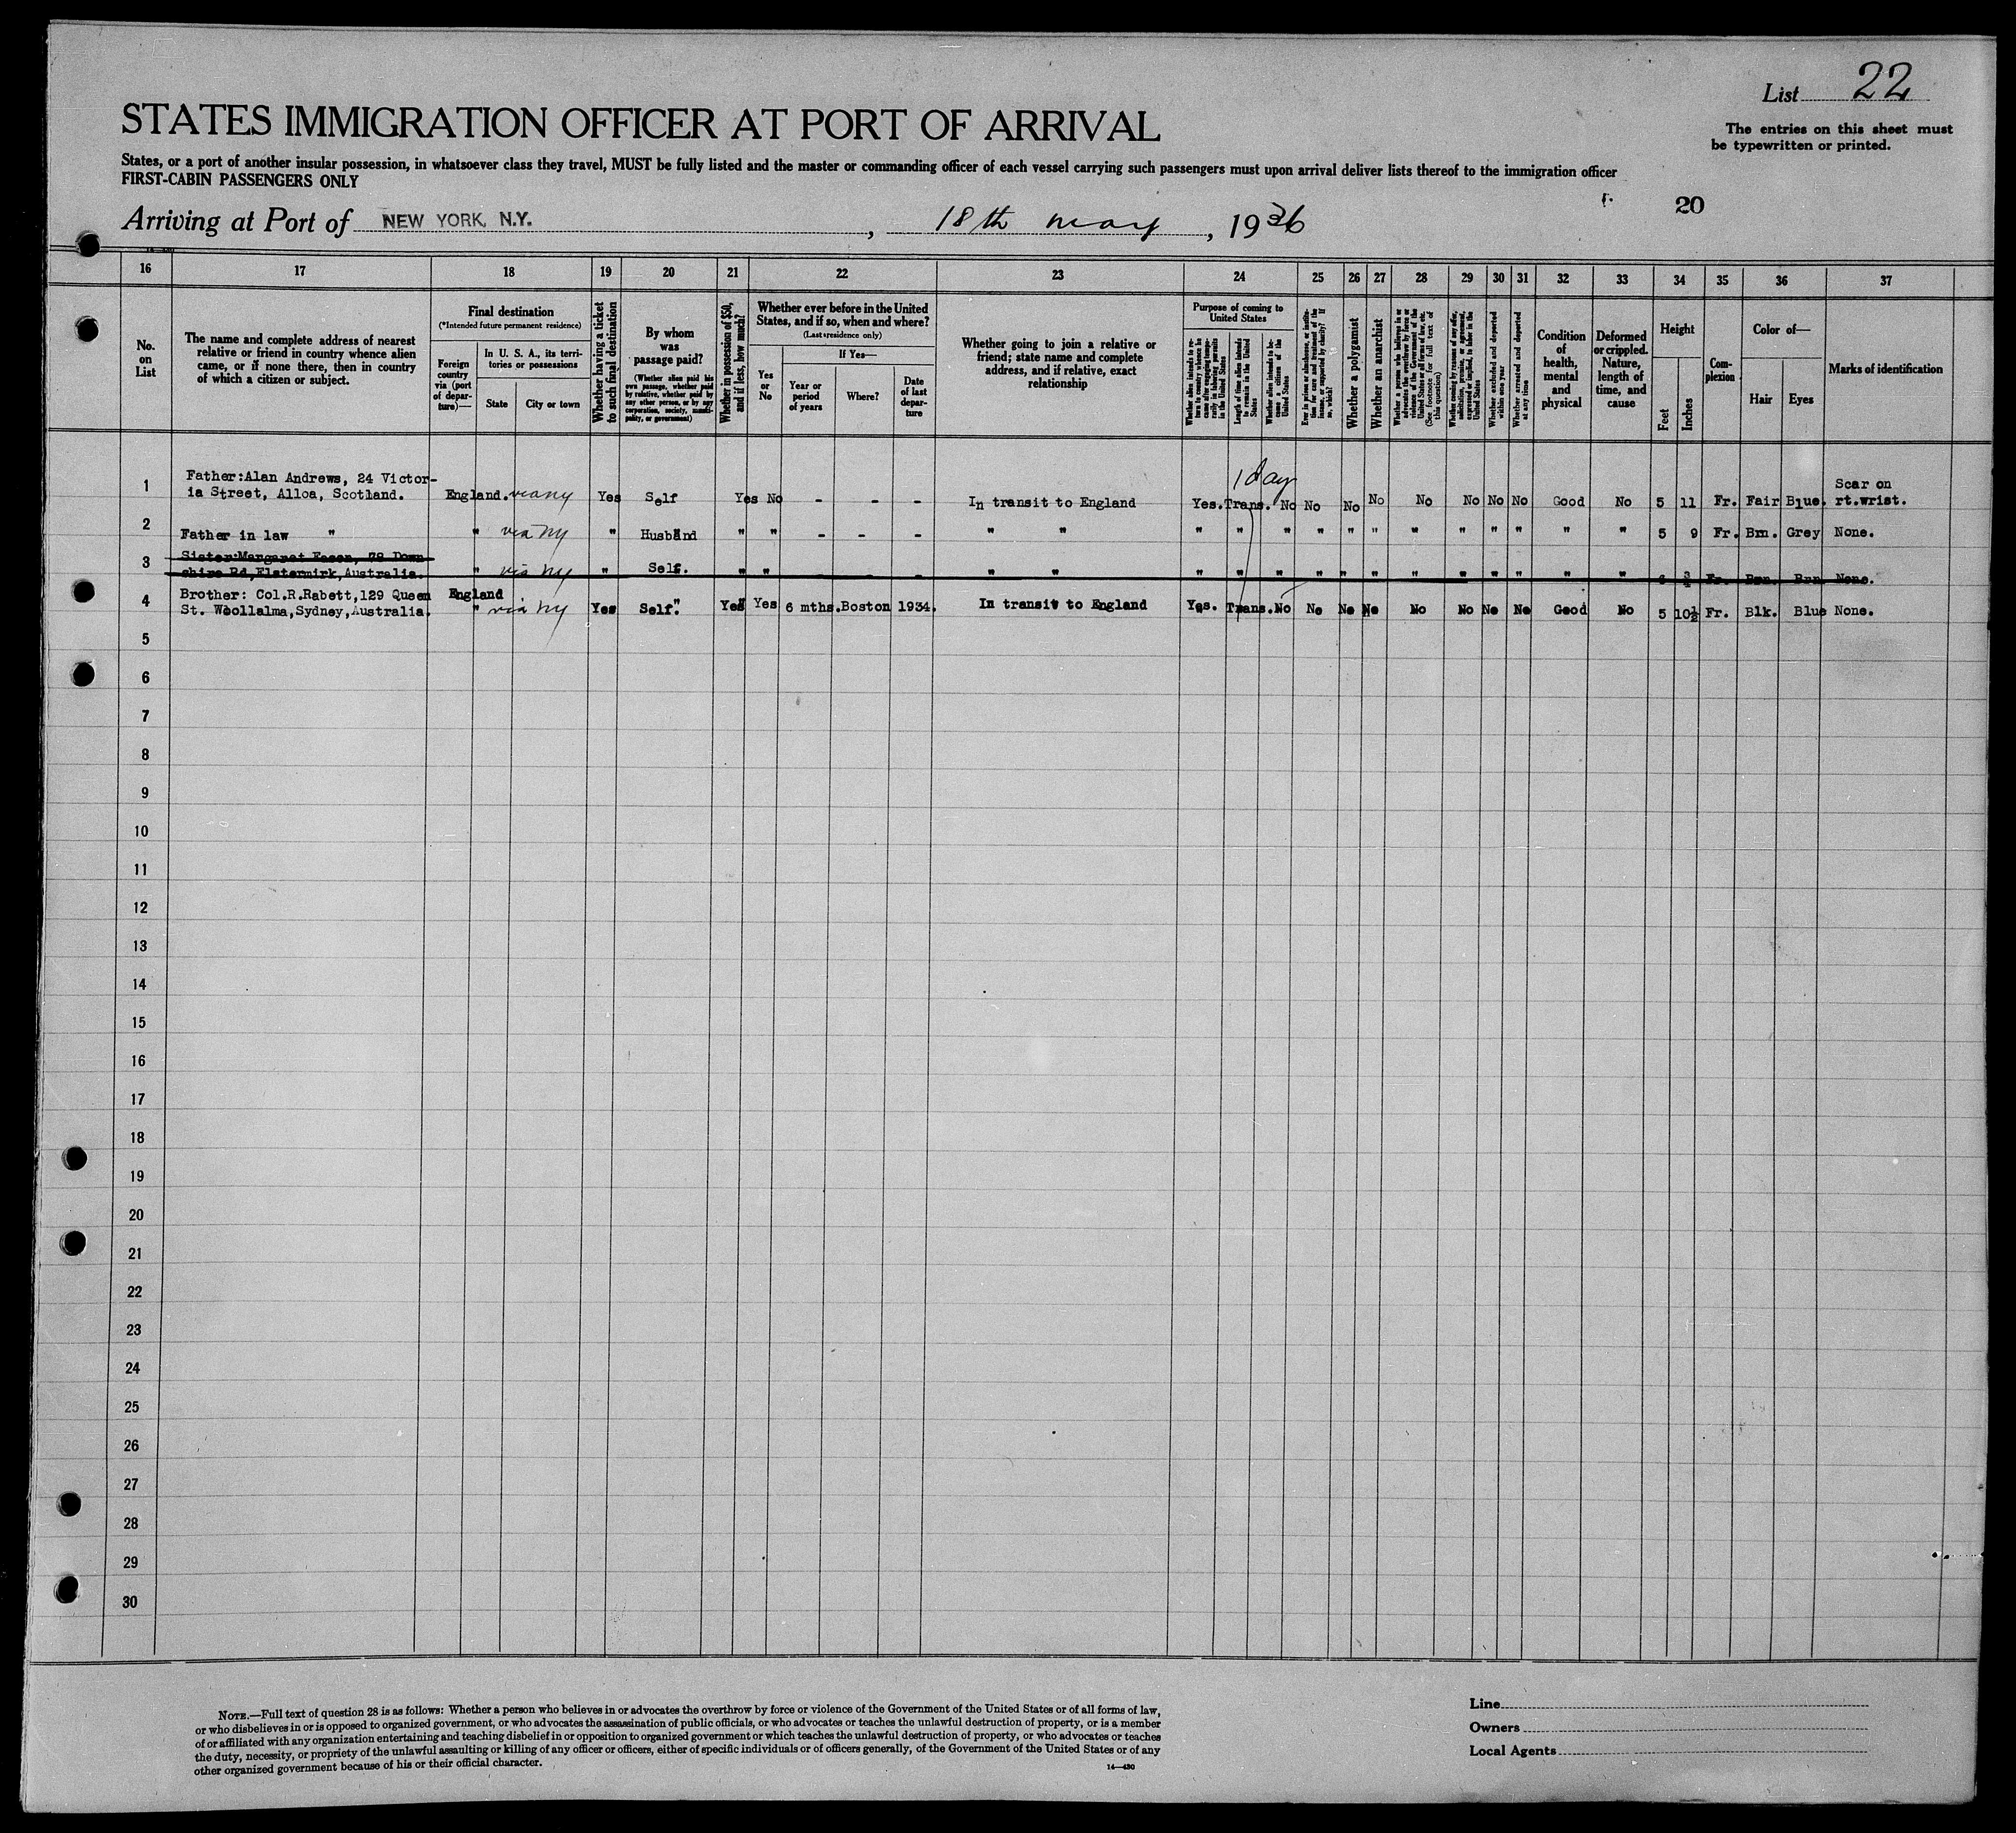 List 22
STATES IMMIGRATION OFFICER AT PORT OF ARRIVAL
The entries on this sheet must
be typewritten or printed.
States, or a port of another insular possession, in whatsoever class they travel, MUST be fully listed and the master or commanding officer of each vessel carrying such passengers must upon arrival deliver lists thereof to the immigration officer
FIRST-CABIN PASSENGERS ONLY
20
Arriving at Port of NEW YORK, N.Y. , 18th may , 1936
16 17 18 19 20 21 22 23 24 25 26 27 28 29 30 31 32 33 34 35 36 37
No.
on
List
The name and complete address of nearest
relative or friend in country whence alien
came, or if none there, then in country
of which a citizen or subject.
Final destination
(*Intended future permanent residence)
Foreign
country
via (port
of depar-
ture)—
In U. S. A., its terri-
tories or possessions
State
City or town
Whether having a ticket
to such final destination
By whom
was
passage paid?
(Whether alien paid his
own passage, whether paid
by relative, whether paid by
any other person, or by any
corporation, society, munici-
pality, or government)
Whether in possession of $50,
and if less, how much?
Whether ever before in the United
States, and if so, when and where?
(Last residence only)
Yes
or
No
If Yes—
Year or
period
of years
Where?
Date
of last
depar-
ture
Whether going to join a relative or
friend; state name and complete
address, and if relative, exact
relationship
Purpose of coming to
United States
Length of time alien intends
to remain in the United
States
Whether alien intends to be-
come a citizen of the
United States
Whether a polygamist
Whether an anarchist
(See footnote for full text of
this question)
Whether excluded and deported
within one year
Whether arrested and deported
at any time
Condition
of
health,
mental
and
physical
Deformed
or crippled.
Nature,
length of
time, and
cause
Height
Feet
Inches
Com-
plexion
Color of—
Hair
Eyes
Marks of identification
1 day
Father:Alan Andrews, 24 Victor-
Scar on
1 ia Street, Alloa, Scotland. England. via ny Yes Self Yes No - - - In transit to England Yes. Trans. No No No No No No No No Good No 5 11 Fr. Fair Blue. rt.wrist.
2 Father in law " " via ny " Husband " " - - - " " " " " " " " " " " " " " 5 9 Fr. Brn. Grey None.
Sister:Margaret Down-
3 shire Rd,Elstermirk,Australia. " via ny " Self. " " - - - " " " " " " " " " " " " " " Fr. Brn. Brn None.
Brother: Col.R.Rabett,129 Queen England
4 St. Woollalma,Sydney,Australia. " via ny Yes Self." Yes Yes 6 mths. Boston 1934. In transit to England Yes. Trans. No No No No No No No No Good No 5 10½ Fr. Blk. Blue None.
5
6
7
8
9
10
11
12
13
14
15
16
17
18
19
20
21
22
23
24
25
26
27
28
29
30
NOTE.—Full text of question 28 is as follows: Whether a person who believes in or advocates the overthrow by force or violence of the Government of the United States or of all forms of law,
or who disbelieves in or is opposed to organized government, or who advocates the assassination of public officials, or who advocates or teaches the unlawful destruction of property, or is a member
of or affiliated with any organization entertaining and teaching disbelief in or opposition to organized government or which teaches the unlawful destruction of property, or who advocates or teaches
the duty, necessity, or propriety of the unlawful assaulting or killing of any officer or officers, either of specific individuals or of officers generally, of the Government of the United States or of any
other organized government because of his or their official character.
14—430
Line
Owners
Local Agents